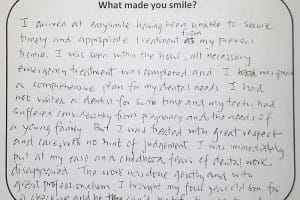 What made you smile?
I arrived at easysmile having been unable to secure
timely and appropriate treatment from my previous
Dentist. I was seen within the hour, all necessary
emergency treatment was completed and I was given
a comprehensive plan for my dental needs. I had
not visited a dentist for some time and my teeth had
suffered considerably from pregnancy and the needs of
a young family. But I was treated with great respect
and care, with no hint of judgement. I was immediately
put at my ease and childhood fears of dental work
disappeared. The work was done gently and with
great professionalism. I brought my four year old son for
a checkup and he can't